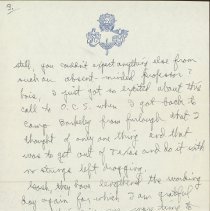 still, you couldn't expect anything else from
such an absent-minded professor?
I just got so excited about this
call to O.C.S. when I got back to
Camp Barkeley from furlough that I
thought of only one thing and that
was to get out of Texas and do it with
no strings left dragging.
Gosh, they have lengthened the working
day again for which I am grateful